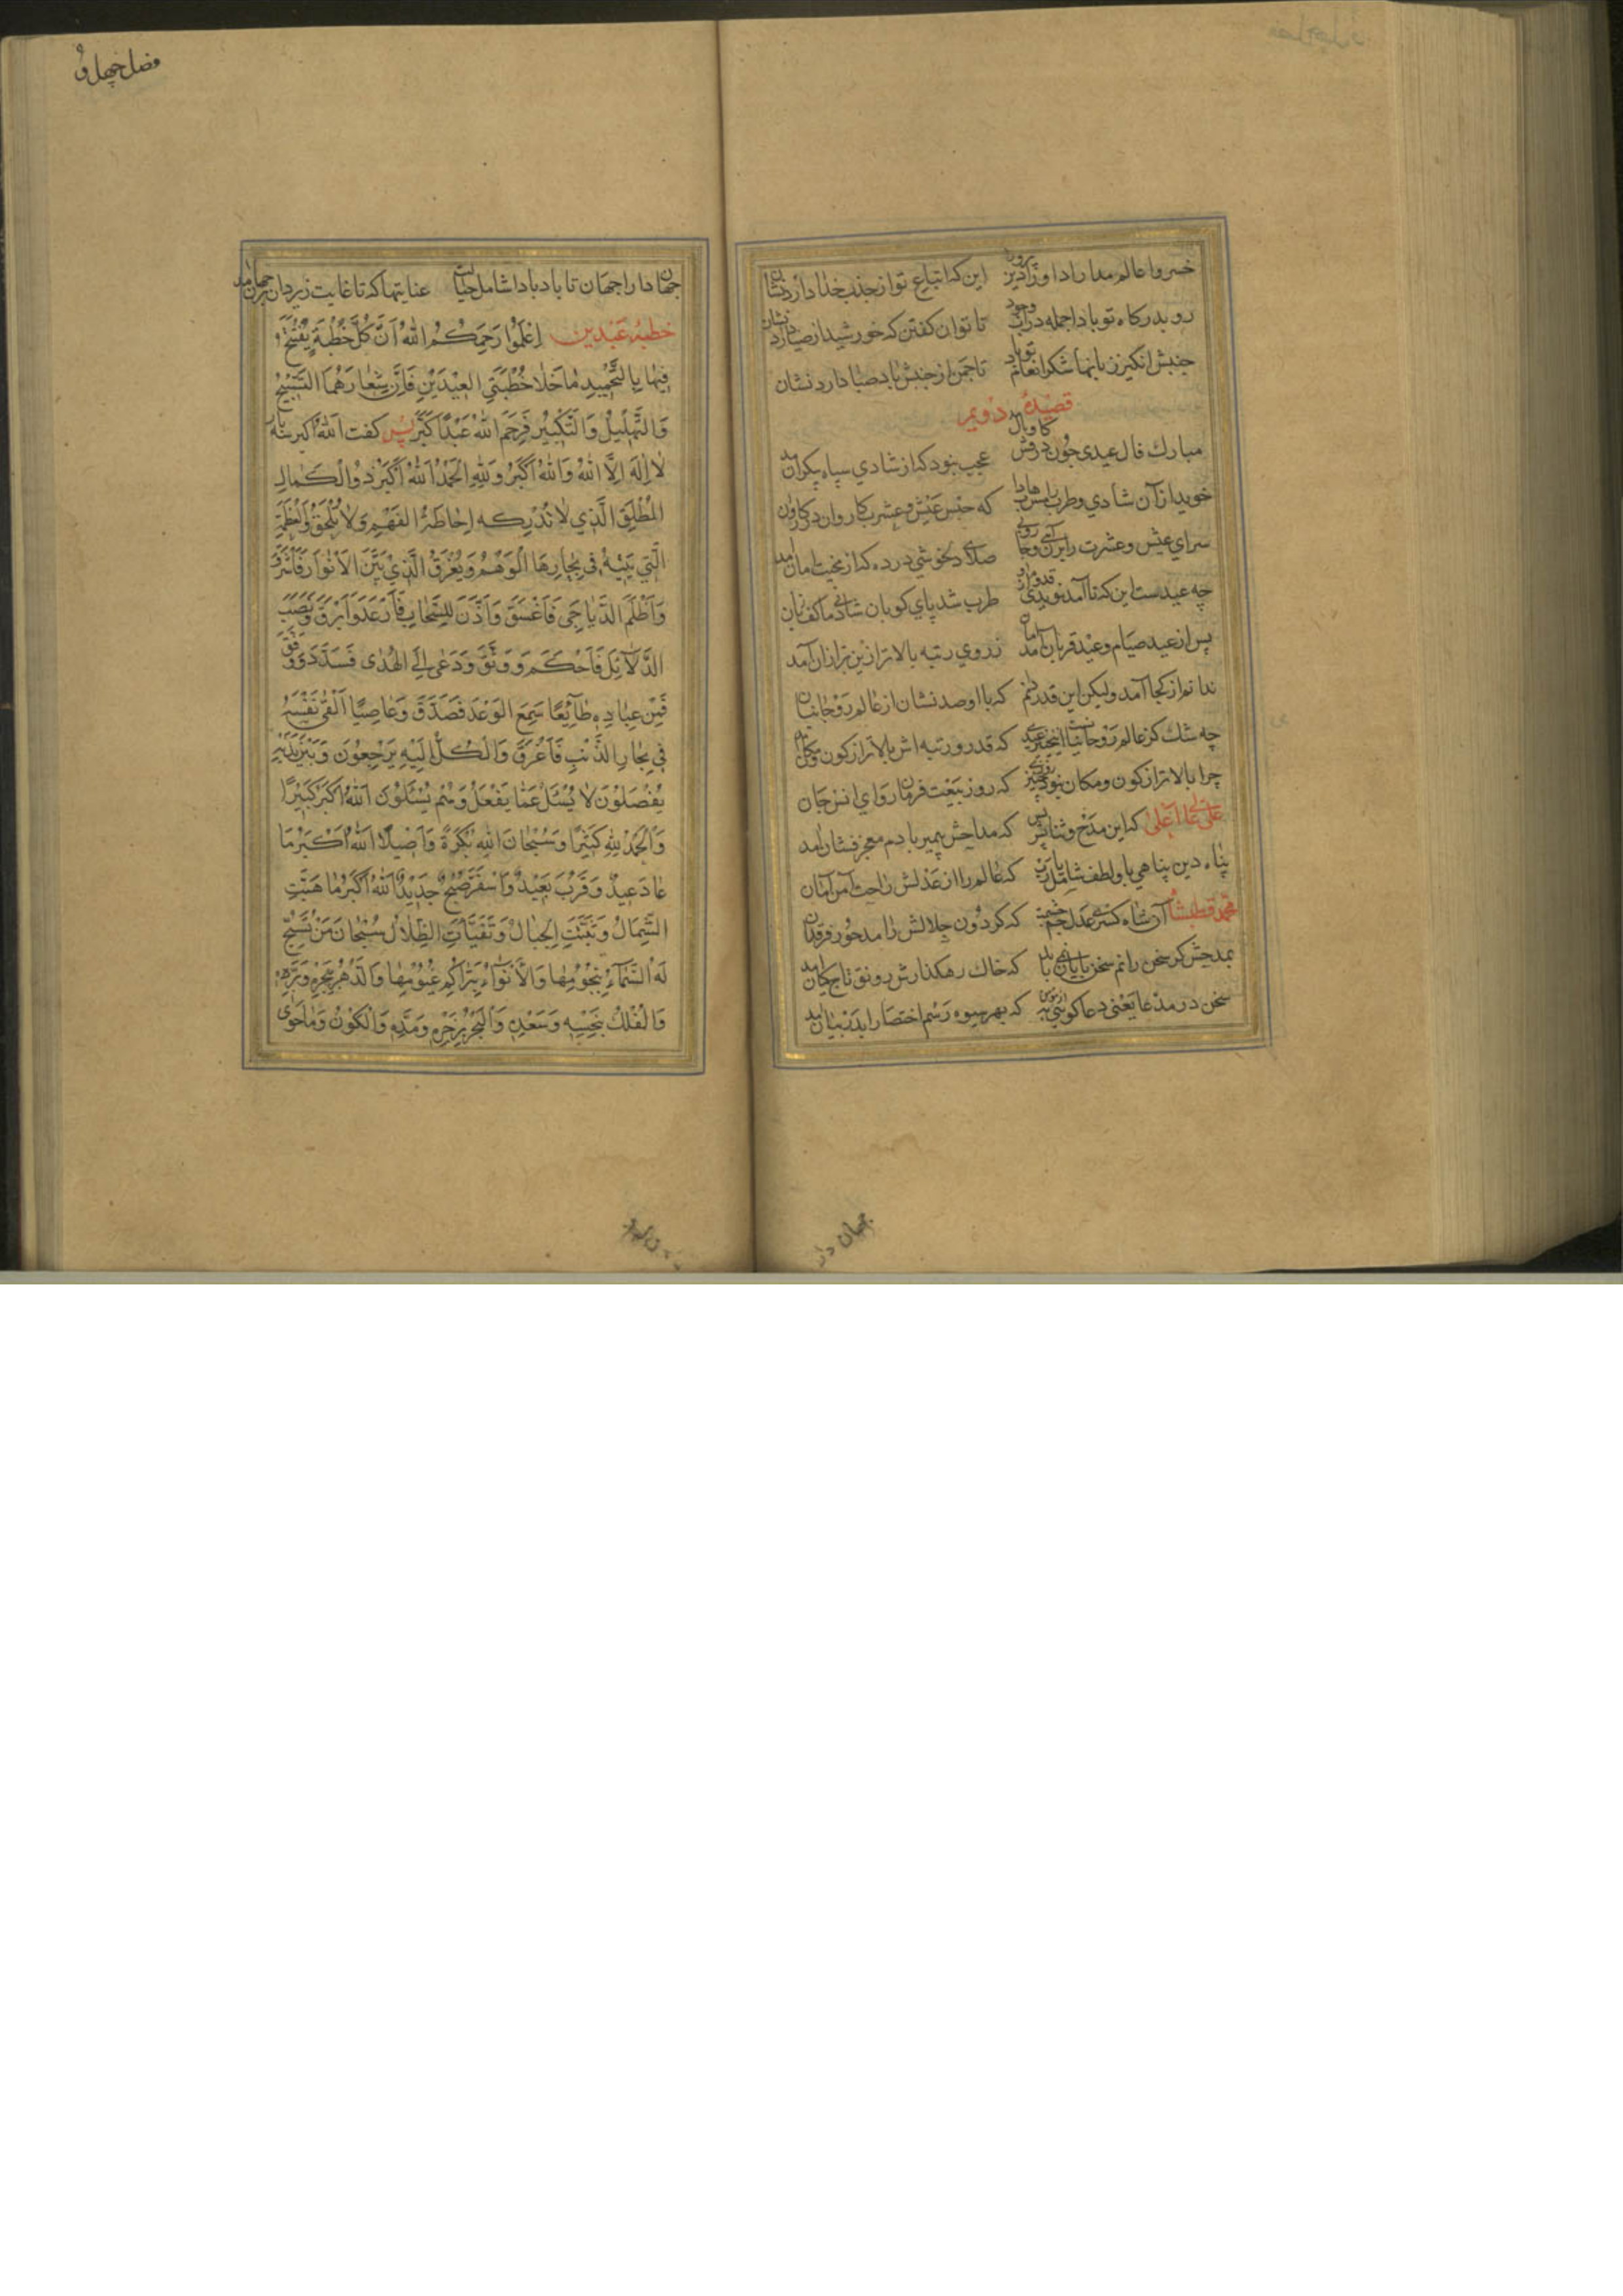 خسروا عالم مدارا داورا دین پرورا این که اتباع تو از جذب خدا دارد نشان
رو بدرگاه تو بادا جمله در باب وجود تا توان گفتن که خورشید از ضیا دارد نشان
جنبش انگیز زبانها شکر انعام تو باد تا چمن از جنبش باد صبا دارد نشان
قصیدهٔ دویم
مبارك فال عیدی چون درفش کاویان آمد عجب نبود که از شادی سپاه بیکران آمد
خویدار آن شادی و طرب را که جنس عیش و عشرت کاروان در کاروان
سرای عیش و عشرت را صلای دلخوشی در ده که از بختت امان آمد
چه عیدست این که تا آمد نوید طرب شد پای کوبان شادی ما کف زنان
پس از عید صیام و عید قربان آمد اما ز روی رتبه بالاتر ازین برتر ازان آمد
ندانم از کجا آمد ولیکن این قدر دانم که با او صد نشان از عالم روحانیان
چه شك کز عالم روحانیست اینچنین عیدی که قدر و رتبه اش بالاتر از کون و مکان آمد
چرا بالاتر از کون و مکان نبود چنین روزی که روز بیعت فرمان روای انس و جان
علی عالی اعلی که این مدح و ثنا بس که مداحش پیمبر با دم معجز فشان آمد
پناه دین پناهی با و لطف شامل که عالم را از عدلش راحت آمن امان
محمد قطبشاه آن شاه کسری عدل جم حشمت که گردون جلالش را مه و خور فرقدان
بمدحش گر سخن رانم سخن بی پایان که خاك رهگذارش رونق تاج کیان آمد
سخن در مدعا یعنی دعا گوئی که بهر میوه رسم اختصار اندر بیان آمد
جهان دار
فصل چهل و
جهان دارا جهان تا باد بادا شامل حالت عنایتها که تا غایت ز یزدان بر جهان آمد
خطبهٔ عیدین اِعْلَمُوا رَحِمَكُمُ اللهُ اَنَّ كُلَّ خُطْبَةٍ يُفْتَتَحُ
فِيهَا بِالتَّحْمِيدِ مَا خَلَا خُطْبَتَيِ الْعِيْدَيْنِ فَاِنَّ شِعَارَهُمَا التَّسْبِيْحُ
وَالتَّهْلِيْلُ وَالتَّكْبِيْرُ فَرَحِمَ اللهُ عَبْدًا كَبَّرَ پس گفت اللهُ اكبر سه بار
لَا اِلَهَ اِلَّا اللهُ وَاللهُ اَكْبَرُ وَلِلّٰهِ الْحَمْدُ اَللهُ اَكْبَرُ ذُو الْكَمَالِ
الْمُطْلَقِ الَّذِي لَا تُدْرِكُه اِحَاطَةُ الْفَهْمِ وَلَا تُلْحَقُ وَالْعَظَمَةِ
الَّتِي يَتِيْهُ فِي بِحَارِهَا الْوَهْمُ وَيُغْرَقُ الَّذِيْ بَيَّنَ الْاَنْوَارَ فَاَشْرَقَ
وَاَظْلَمَ الدَّيَاجِي فَاَغْسَقَ وَاَذِنَ لِلسَّحَابِ فَاَرْعَدَ وَاَبْرَقَ وَنَصَبَ
الدَّلَآئِلَ فَاَحْكَمَ وَوَثَّقَ وَدَعٰى اِلَى الْهُدٰى فَسَدَّدَ وَوَفَّقَ
فَمِنْ عِبَادِهِ طَآئِعًا سَمِعَ الْوَعْدَ فَصَدَّقَ وَعَاصِيًا اَلْقٰى نَفْسَهُ
فِي بِحَارِ الذَّنْبِ فَاَغْرَقَ وَالْكُلُّ اِلَيْهِ يَرْجِعُوْنَ وَبَيْنَ يَدَيْهِ
يُفْصَلُوْنَ لَا يُسْئَلُ عَمَّا يَفْعَلُ وَهُمْ يُسْئَلُوْنَ اَللهُ اَكْبَرُ كَبِيْرًا
وَالْحَمْدُ لِلّٰهِ كَثِيْرًا وَسُبْحَانَ اللهِ بُكْرَةً وَاَصِيْلًا اَللهُ اَكْبَرُ مَا
عَادَ عِيْدٌ وَقَرُبَ بَعِيْدٌ وَاَسْفَرَ صُبْحٌ جَدِيْدٌ اَللهُ اَكْبَرُ مَا هَبَّتِ
الشِّمَالُ وَثَبَتَتِ الْجِبَالُ وَتَفَيَّأَتِ الظِّلَالُ سُبْحَانَ مَنْ تُسَبِّحُ
لَهُ السَّمَآءُ بِنُجُوْمِهَا وَالْاَنْوَاءُ بِتَرَاكُمِ غُيُوْمِهَا وَالدَّهْرُ بِبَحْرِهِ وَبَرِّهِ
وَالْفُلْكُ بِنَحْسِهِ وَسَعْدِهِ وَالْبَحْرُ بِجَزْرِهِ وَمَدِّهِ وَالْكَوْنُ وَمَا حَوٰى